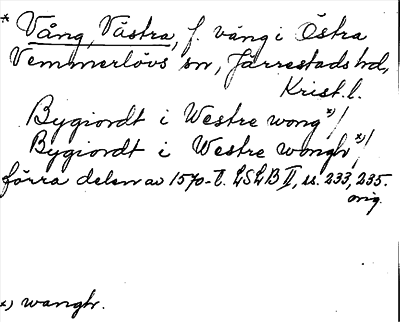 * Vång, Västra, f. vång i Östra
Vemmerlövs sn, Järrestads hd,
Krist. l.
Bygiordt i Westre wong x)/
Bygiordt i Westre wongh x)/
förra delen av 1570-t. LSLB II, ss. 233, 235.
orig.
x) wangh.